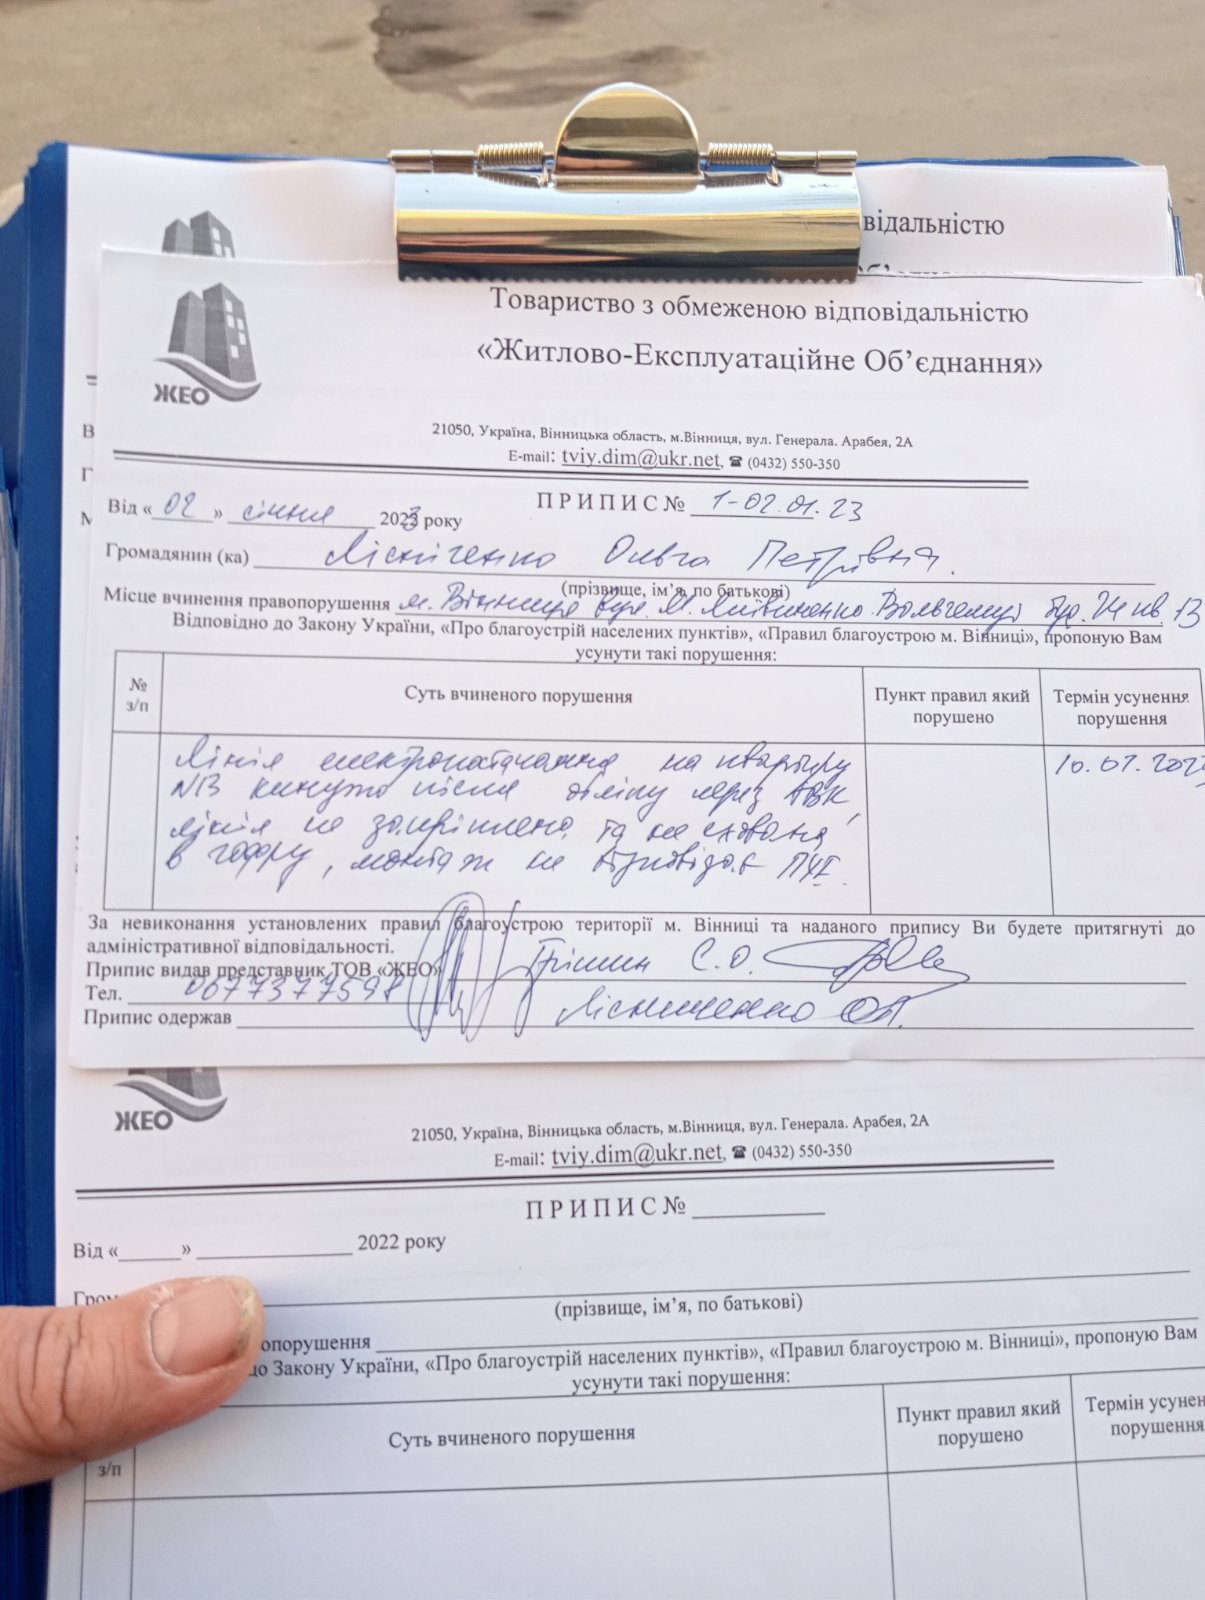 відальністю
Товариство з обмеженою відповідальністю
«Житлово-Експлуатаційне Об’єднання»
ЖЕО
21050, Україна, Вінницька область, м.Вінниця, вул. Генерала. Арабея, 2А
E-mail: tviy.dim@ukr.net, ☎ (0432) 550-350
ПРИПИС № 1-02.01.23
Від «02» січня 2023 року
Громадянин (ка) Ольга Петрівна.
(прізвище, ім’я, по батькові)
Місце вчинення правопорушення м. Вінниця вул. М. буд. кв. 13
Відповідно до Закону України, «Про благоустрій населених пунктів», «Правил благоустрою м. Вінниці», пропоную Вам
усунути такі порушення:
№ з/п
Суть вчиненого порушення
Пункт правил який порушено
Термін усунення порушення
Лінія електропостачання на квартиру
№13 кинуто після обліку через АВК,
лінія не закріплена та не схована
в гофру, монтаж не відповідає ПУЕ.
10.01.202
За невиконання установлених правил благоустрою території м. Вінниці та наданого припису Ви будете притягнуті до
адміністративної відповідальності.
Припис видав представник ТОВ «ЖЕО» Грішин С.О.
Тел. 0677377598
Припис одержав
ЖЕО
21050, Україна, Вінницька область, м.Вінниця, вул. Генерала. Арабея, 2А
E-mail: tviy.dim@ukr.net, ☎ (0432) 550-350
ПРИПИС №
Від «______» ______ 2022 року
Гром
(прізвище, ім’я, по батькові)
опорушення
до Закону України, «Про благоустрій населених пунктів», «Правил благоустрою м. Вінниці», пропоную Вам
усунути такі порушення:
з/п
Суть вчиненого порушення
Пункт правил який порушено
Термін усунен порушення